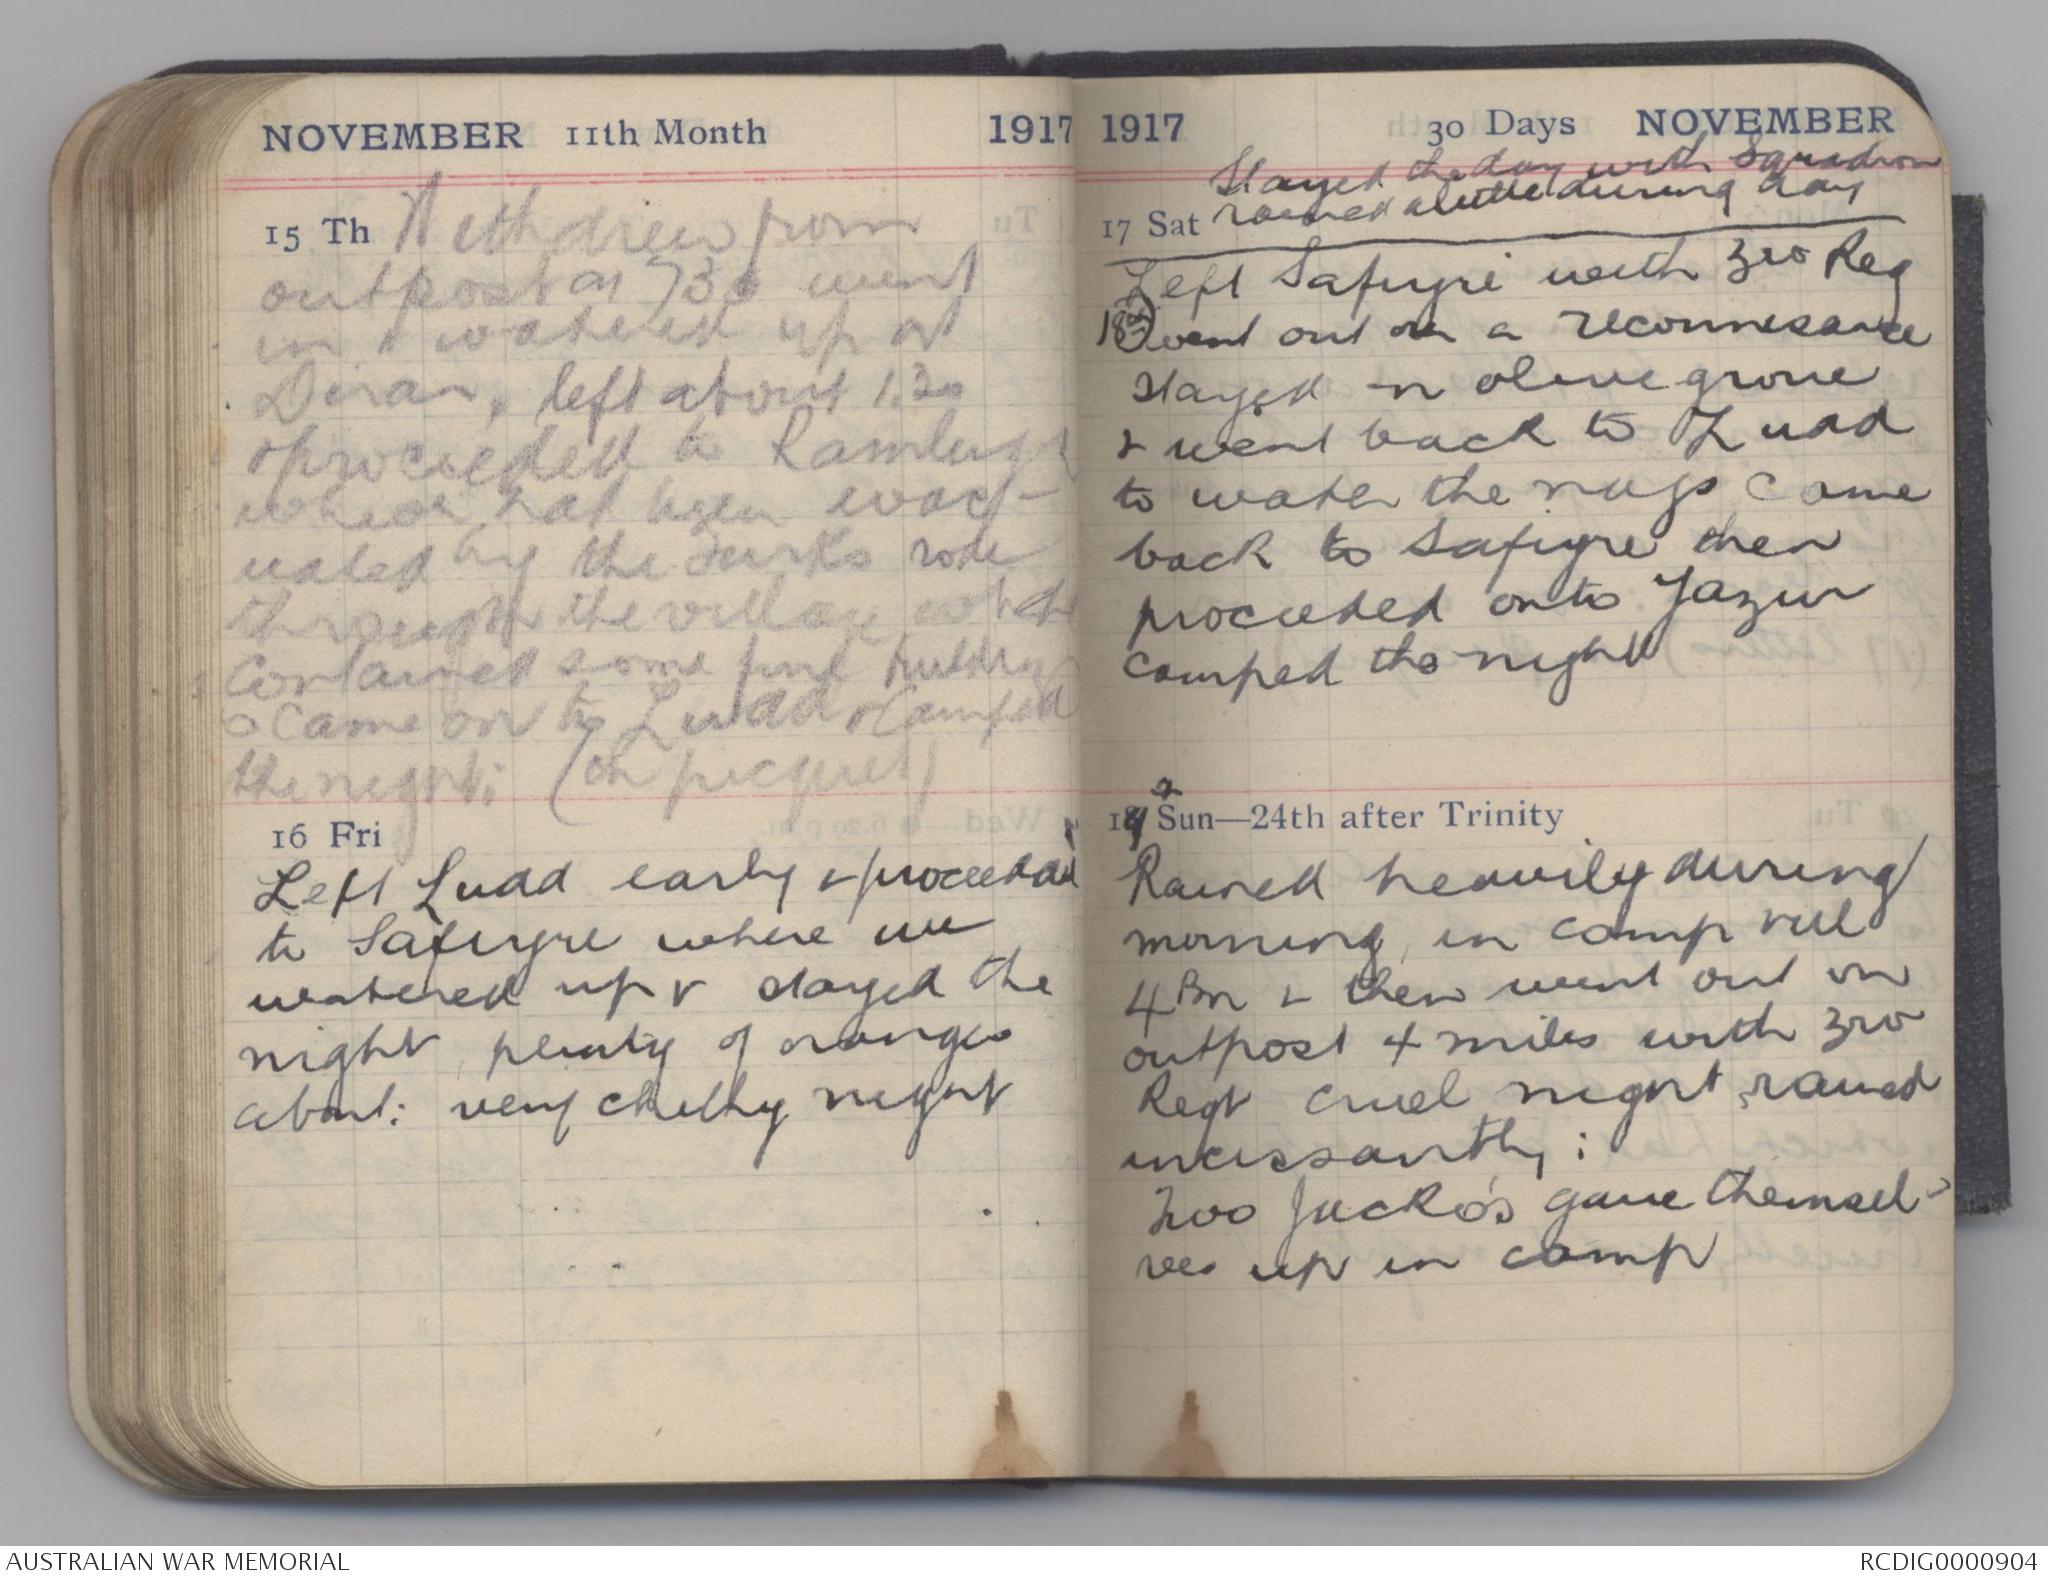 NOVEMBER 11th Month 1917
15 Th Withdrew from
outpost at 730 went
in & watered up at
Diran, left about 1.30
& proceeded to Ramleh
which had been evac-
uated by the Turks rode
through the village which
contained some fine buildings
& came on to Ludd & camped
the night: (on picquet)
16 Fri
Left Ludd early & proceeded
to Safuyre where we
watered up & stayed the
night plenty of oranges
about: very chilly night
1917 30 Days NOVEMBER
Stayed the day with Squadron
17 Sat rained a little during day
Left Safuyri with 3rd Reg
18th went out on a reconnesance
stayed in olive grove
& went back to Ludd
to water the nags came
back to Safuyre then
proceeded onto Jazur
camped the night
19 Sun—24th after Trinity
Rained heavily during
morning, in camp till
4 Pm & then went out on
outpost 4 miles with 3rd
Regt cruel night rained
incessantly;
Two Jacko's gave themsel-
ves up in camp
AUSTRALIAN WAR MEMORIAL
RCDIG0000904